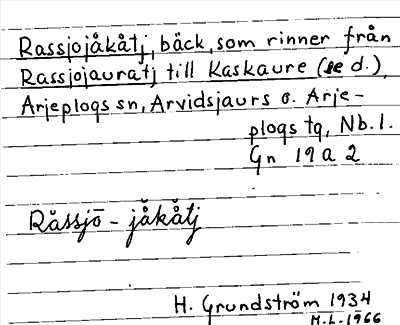 Rassjojåkåtj, bäck, som rinner från
Rassjojauratj till Kaskaure (se d.),
Arjeplogs sn, Arvidsjaurs o. Arje-
plogs tg, Nb. l.
Gn 19 a 2
Răssjō - jǻkǻtj
H. Grundström 1934
M.L. 1966